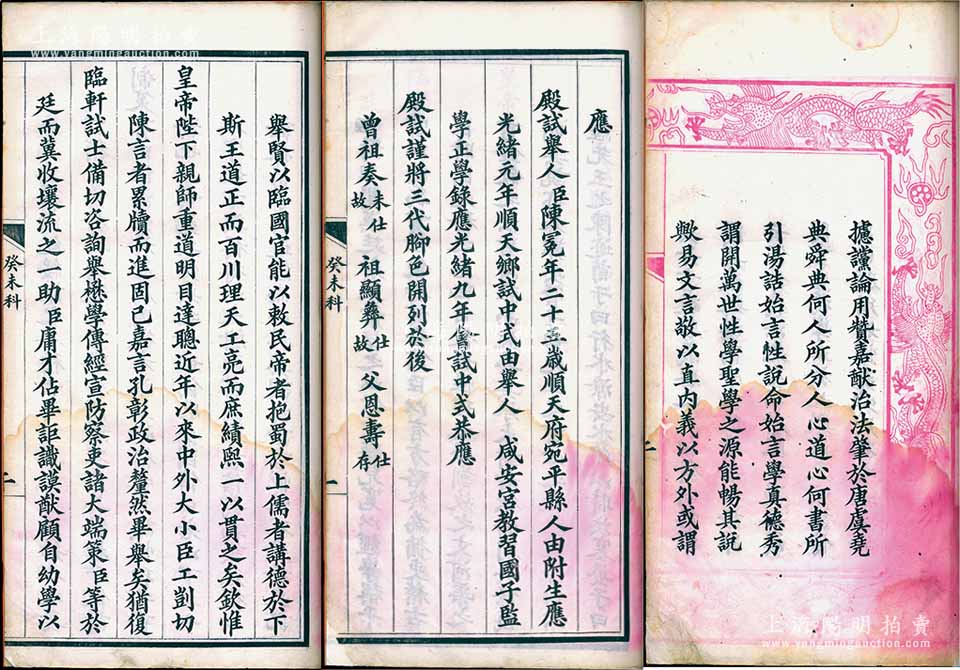 上海陽明拍賣
www.yangmingauction.com
攄讜論用贊嘉猷治法肇於唐虞堯
典舜典何人所分人心道心何書所
引湯誥始言性說命始言學真德秀
謂開萬世性學聖學之源能暢其說
歟易文言敬以直內義以方外或謂
應
殿試舉人臣陳冕年二十五歲順天府宛平縣人由附生應
光緒元年順天鄉試中式由舉人咸安宮教習國子監
學正學錄應光緒九年會試中式恭應
殿試謹將三代腳色開列於後
曾祖奏未仕故 祖顯彝仕故 父恩壽仕存
癸未科
一
舉賢以臨國官能以敕民帝者抱蜀於上儒者講德於下
斯王道正而百川理天工亮而庶績熙一以貫之矣欽惟
皇帝陛下親師重道明目達聰近年以來中外大小臣工剴切
陳言者累牘而進固已嘉言孔彰政治釐然畢舉矣猶復
臨軒試士備切咨詢舉懋學傳經宣防察吏諸大端策臣等於
廷而冀收壤流之一助臣庸才佔畢詎識謨猷顧自幼學以
癸未科
二
上海陽明拍賣
www.yangmingauction.com